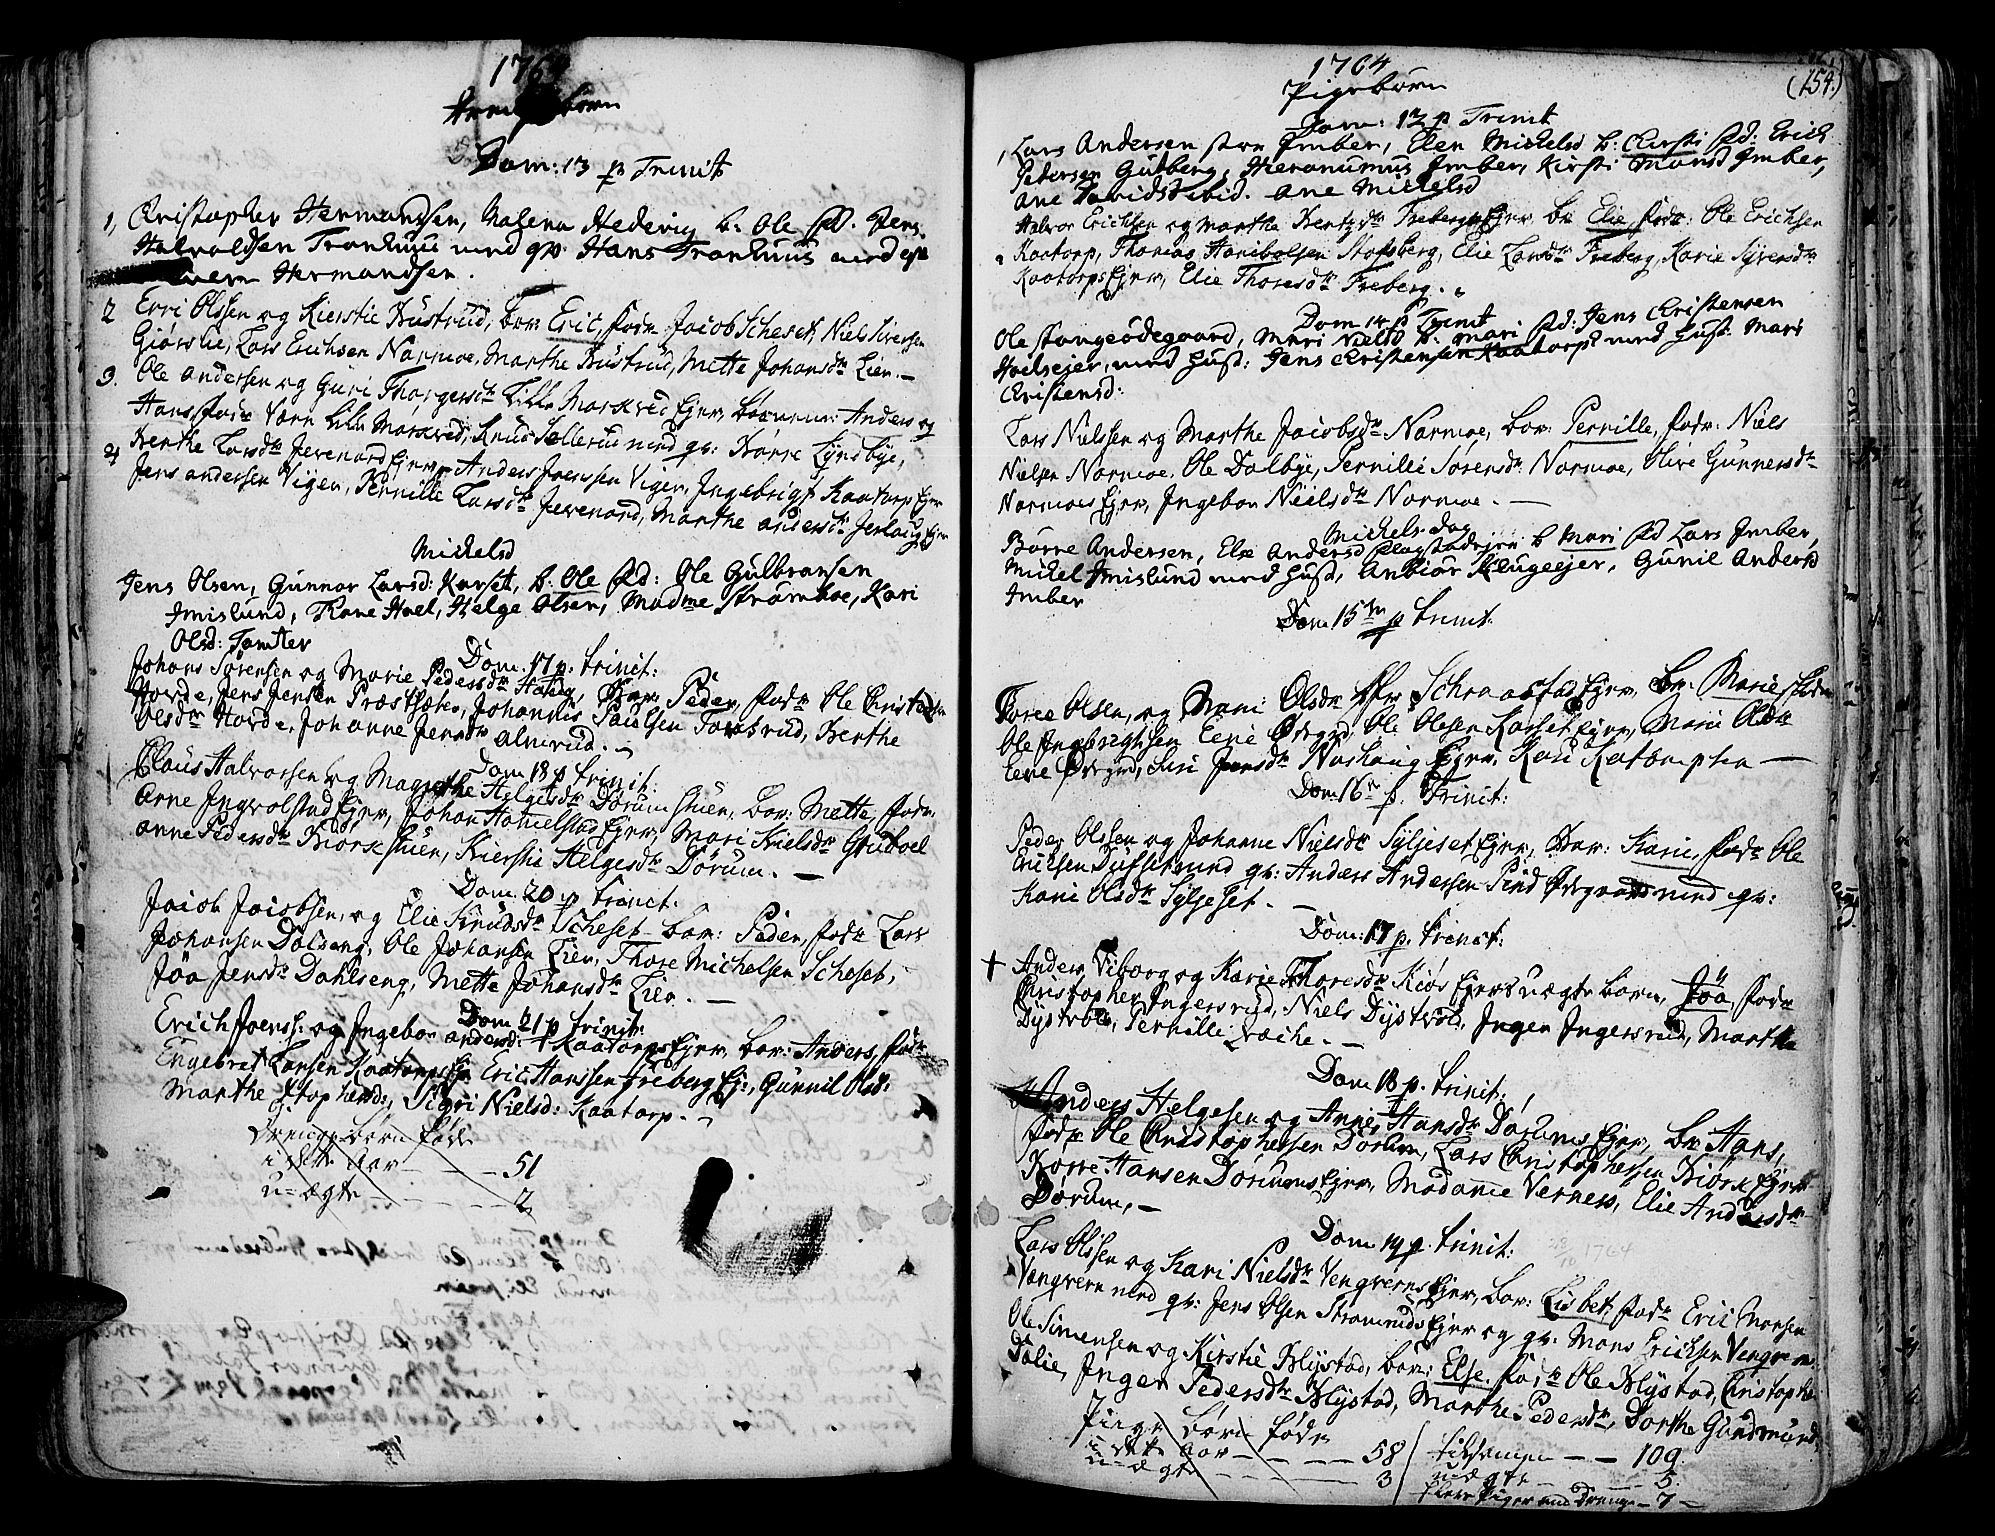 1764
Drengebørn
Dom: 13 p Trinit
1, Christopher Hermandsen, Malena Hedevig b: Ole fd. Jens
Halvoldsen Tronhuus med qv. Hans Tronhuus med
Hermandsen.
2 Erri Olssen og Kierstie Trustrud, bar: Eric, fadr Jacob Scheset, Niels Siversen
Giørslie, Lars Erichsen Narmoe, Marthe Trustrud, Mette Johansdr Lien.-
3. Ole Andersen og Guri Thorgersdr Lille Morskred Ejer, børnene: Anders og
Hans, fadr Værn Lille Morskred, Knud Sellerud med qv: Børre Lyndbye,
4 Berthe Larsdr Jevenord Ejer, Anders Joenssen Viger, Ingebrigt Kaatorp Ejer
Jens Andersen Viger, Pernille Larsdr Jevenord, Marthe Andersdr Jerlaug Ejer
Mickelsd
Jens Olsen, Gunnor Larsd: Karset, b: Ole fd: Ole Gulbransen
Imislund, Tkone Hoel, Helge Olsen, Madme Strømhoe, Kari
Olsd: Tomter
Dom. 17 p. trinit:
Johans Sørensen og Marie Pedersdr Horde, Bar: Peder, fadr Ole Christensen
Horde, Jens Jensen Præsthæten, Johannes Paulsen Fonsrud, Berthe
Olsdr Horde, Johanne Jensdr Almrud. -
Dom 18 p trinit:
Claus Halvorssen og Magrethe Helgesdr Dørum stuen, bar: Mette, fadr
Arne Ingvolstad Ejer, Johan Hamelstad Ejer, Mari Nielsdr Gruboel
Anne Pedersdr Biørkstuen, Kierstie Helgesdr Dørum. -
Dom 20 p trinit:
Jacob Jacobsen, og Elie Knudsdr Scheset bar: Peder, fadr Lars
Johansen Dalseng, Ole Johansen Lien, Thore Michelsen Scheset,
Jøa Jensdr Dahlseng, Mette Johansdr Lien. -
Dom 21 p trinit:
Erich Joenss: og Ingebor Andersd: Kaatorps Ejer, bar: Anders, fadr
Engebret Larsen Kaatorps Ejer Eric Hanssen Freberg Ej:, Gunnil Olsd:
Marthe Stophersd:, Sigri Nielsd: Kaatorp. -
Drengebørn føde
i dette Aar - - - 51
u-ægte - - - - 2
1764
(154.)
Pigebørn
Dom: 13 p Trinit
1, Lars Andersen fra Imber, Elen Mickelsd b: Chirsti fd: Erich
Pedersen Gulberg, Hieronumus Imber, Kirsti Monsd Imber,
Ane Davidsd ibid. Ane Mickelsd
Halvor Erichsen og Marthe Berntzdr Freberg Ejer br: Elie, fadr: Ole Erichsen
Kaatorp, Thomas Haniboldsen Stofsberg, Elie Larsdr Freberg, Karie Syversdr
Kaatorps Ejer, Elie Thoresdr Freberg.
Dom 14 p Trinit
Ole Stangeødegaard, Mari Nielsd b: Mari fd: Jens Christensen
Hoelsejer, med Hust: Jens Christensen Kaatorp med Hust: Mari
Christensd:
Lars Nielssen og Marthe Jacobsdr Narmoe, bar: Pernille, fadr: Niels
Nielsen Narmoe, Ole Dalbye, Pernille Sørensdr Narmoe, Olive Gunnersdr
Narmoes Ejer, Ingebor Nielsdr Narmoe. -
Mickels Dag
Børre Andersen, Else Andersd Slagstadejen b Mari fd Lars Imber,
Mickel Imislund med Hust, Anbiør Klugeejer, Gunil Andersd
Imber
Dom 15de p trinit:
Torce Olsen, og Mari Olsdr Schraastad Ejer, Br: Marie, fadr
Ole Ingebregtsen Eene Ødegrd, Ole Olesen Karset Ejer, Marie Olsdr
Eene Ødegrd, Siri Jensdr Nashoug Ejer, Kari Katomphn -
Dom 16de p. Trinit:
Peder Olssen og Johanne Nielsdr Syljeset Ejer, Bar: Karie, fadr Ole
Erichsen Dufset med qv: Anders Andersen Lind Ødegrd med qv:
Karie Olsdr Syljeset. -
Dom: 17 p. trinit:
+ Anders Viborg og Karie Thoresdr Kiøs Ejer uægte barn, Jøa, fadr
Christopher Ingersrud, Niels Dystvold, Inger Ingersrud, Marthe
Dystvold, Pernille Læche. -
Dom 18 p. trinit:
Anders Helgesen og Anne Hansdr Dørums Ejer, br: Hans,
fadr Ole Christophersen Dørum, Lars Christophersen Biørk Ejer
Børre Hansen Dørumens Ejer, Madame Vernes, Elie Andersdr
Dørum, -
Dom 19 p. trinit: 28/10 1764
Lars Olssen og Kari Nielsdr Vengverns Ejer, bar: Lisbet, fadr Eric Monsen
Vengvern med qv: Jens Olsen Stromruds Ejer og qv: Mons Erichsen Vengvern
Ole Simensen og Kirstie Blystad, bar: Else, fadr Ole Blystad, Christopher
Dølie, Inger Pedersdr Blystad, Marthe Pedersdr, Dorthe Gundmund
Pige børn føde
i dette Aar - - - 58
u-ægte - - - 3
tilsammen - - 109
u-ægte - - 5
flere Piger end Drenge - 7 -